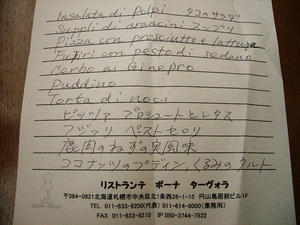 Insalata di Polpi タコのサラダ
Supplì di arancini スップリ
Pizza con prosciutto e lattuga
Fusiri con pesto di sedano
Cerbo ai Ginepro
Puddino
Torta di noci
ピッツァ プロシュートとレタス
フジッリ ペストセロリ
鹿肉のねずの実風味
ココナッツのプディン,くるみのタルト
リストランテ ボーナ ターヴォラ
〒064-0821北海道札幌市中央区北1条西26-1-15 円山鳥居前ビル1F
TEL 011-633-6200(代表) 011-614-8000(業務用)
FAX 011-633-6210 IP 050-3744-7522